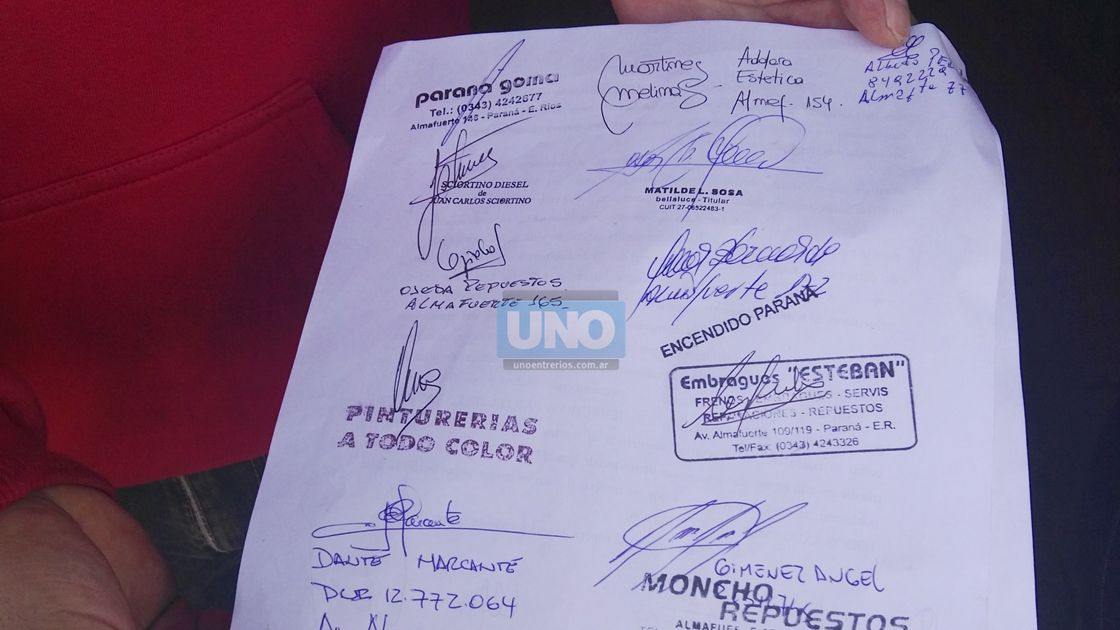 parana goma
Tel.: (0343) 4242677
Almafuerte 145 - Paraná - E. Ríos
Martinez
Melina
Addora
Estetica
Almaf. 154.
Alberto
8492229
SCIORTINO DIESEL
de
JUAN CARLOS SCIORTINO
MATILDE L. SOSA
bellaluce - Titular
CUIT 27-06522483-1
OJEDA REPUESTOS
ALMAFUERTE 165_
Almafuerte
ENCENDIDO PARANÁ
UNO
unoentrerios.com.ar
PINTURERIAS
A TODO COLOR
Embragues "ESTEBAN"
FRENOS - EMBRAGUES - SERVIS
REPARACIONES - REPUESTOS
Av. Almafuerte 109/119 - Paraná - E.R.
Tel/Fax: (0343) 4243326
DANTE MARCANTE
12.772.064
GIMENEZ ANGEL
MONCHO
REPUESTOS